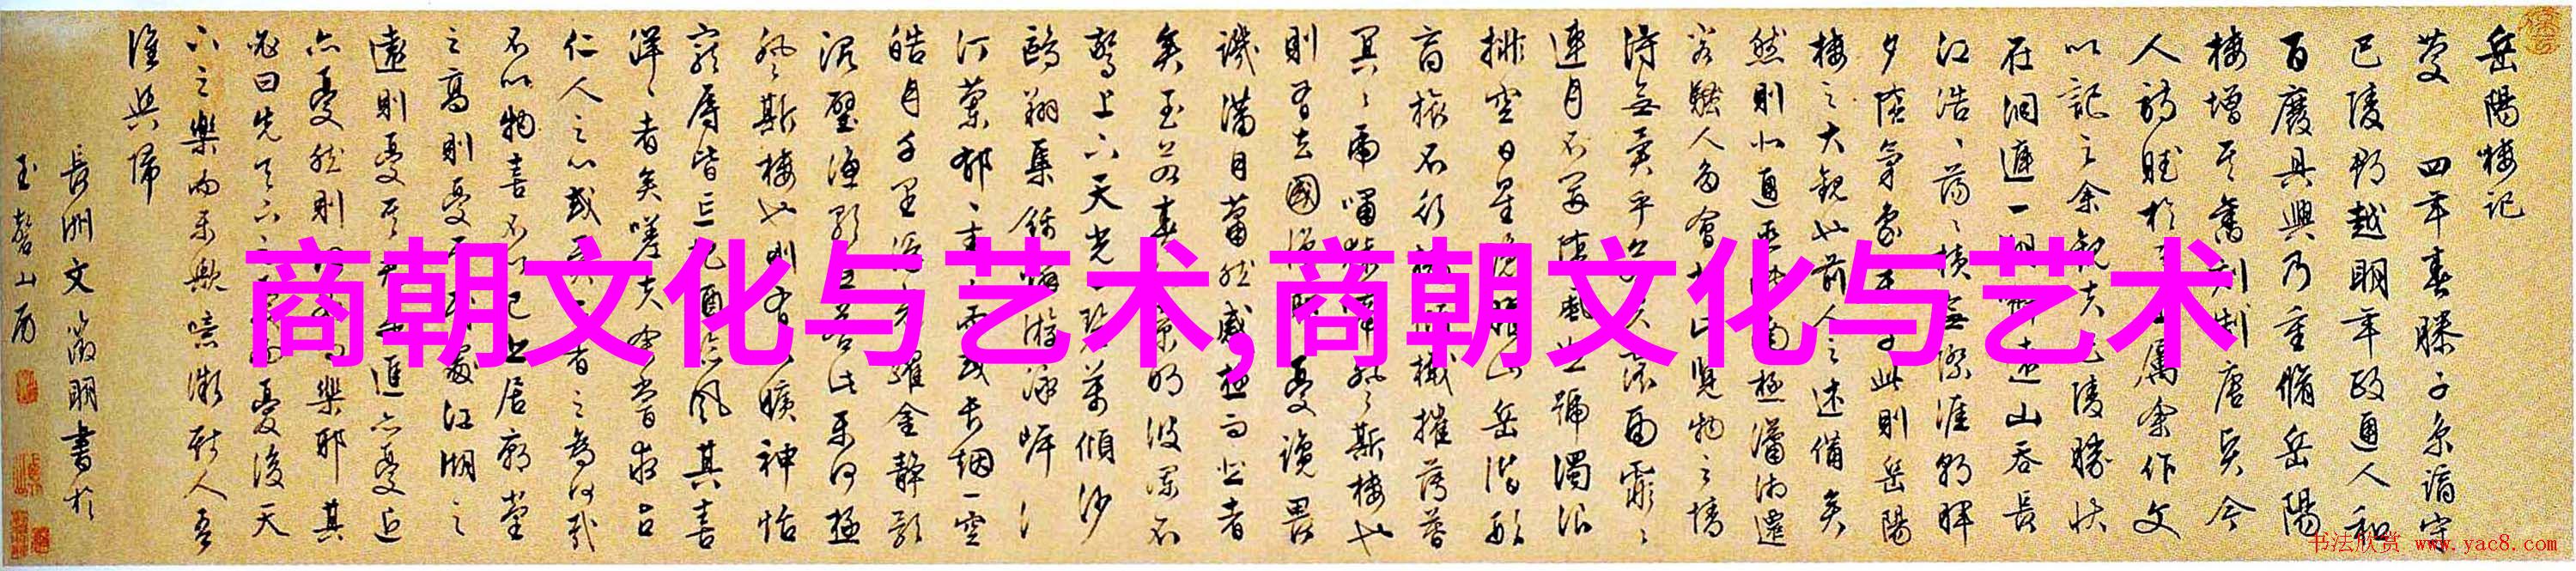 岳陽樓記
慶 四年春滕子京謫守
巴陵郡越明年政通人和
百廢具興乃重脩岳陽
樓增其舊制唐賢今
人詩賦於 屬余作文
以記之余觀夫巴陵勝狀
在洞庭一湖 遠山吞長
江浩〻蕩〻橫無際涯朝暉
夕陰氣象 千此則岳陽
樓之大觀也前人之述備矣
然則北通巫 南極瀟湘遷
客騷人多會於此覽物之情
得無異乎 夫霪雨霏〻
連月不開陰風怒號濁浪
排空日星隱曜山岳潛形
商旅不行檣傾楫摧薄暮
冥〻虎嘯猿啼登斯樓也
則有去國 憂讒畏
譏滿目蕭然感極而悲者
矣至若春 景明波瀾不
驚上下天光一碧萬頃沙
鷗翔集錦鱗游泳岸
汀蘭郁〻青〻而或長烟一空
皓月千里浮光耀金靜影
沉璧漁歌互答此樂何極
登斯樓也則有心曠神怡
寵辱皆忘把酒臨風其喜
洋〻者矣嗟夫予嘗求古
仁人之心或異二者之為何哉
不以物喜不以己 居廟堂
之高則憂其 處江湖之
遠則憂其 是進亦憂退
亦憂然則何時而樂耶其
必曰先天下之 而憂後天
下之樂而樂歟噫微斯人吾
誰與歸
長洲文徵明書於
玉磬山房
商朝文化与艺术,商朝文化与艺术
书法欣赏 www.yac8.com